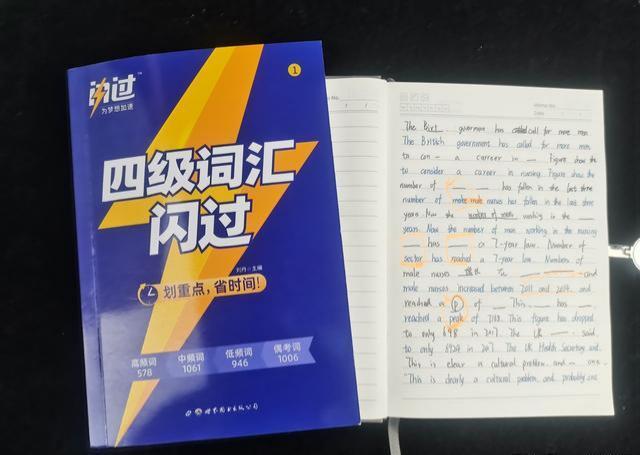 闪过
为梦想加速
1
四级词汇
闪过
刘丹 主编
划重点，省时间！
高频词
578
中频词
1061
低频词
946
偶考词
1006
世界图书出版公司
The Birt governmen has call for more men
The British government has called for more men
to con- a carreer in . Figure show the
to consider a career in nursing. Figure show the
number of has fallen in the last three
number of male nurses has fallen in the last three
years. Now the number of men working in the
years. Now the number of men working in the nursing
has a 7-year low. Number of
sector has reached a 7-year low. Numbers of
male nurses and
male nurses increased between 2011 and 2014 and
reached a p of . This has
reached a peak of 7168. This figure has dropped
to only 698 in 2017. The UK said
to only 6924 in 2017. The UK Health Secretary said
This is clear a cultural problem, and one
This is clearly a cultural problem, and probably one